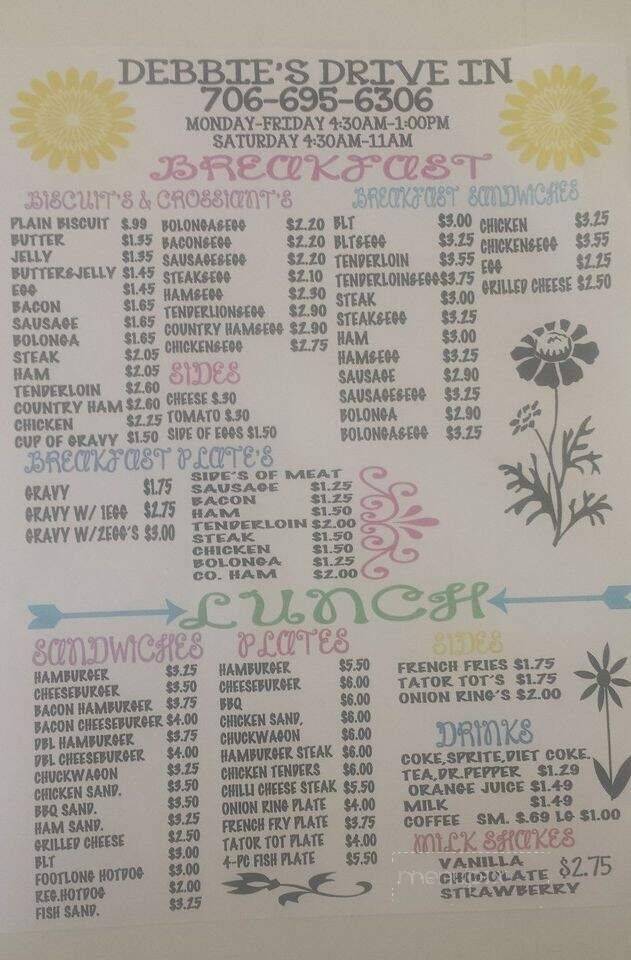 DEBBIE'S DRIVE IN
706-695-6306
MONDAY-FRIDAY 4:30AM-1:00PM
SATURDAY 4:30AM-11AM
BREAKFAST
BISCUIT'S & CROSSIANT'S
PLAIN BISCUIT $.99
BUTTER $1.35
JELLY $1.35
BUTTER&JELLY $1.45
EGG $1.45
BACON $1.65
SAUSAGE $1.65
BOLONGA $1.65
STEAK $2.05
HAM $2.05
TENDERLOIN $2.60
COUNTRY HAM $2.60
CHICKEN $2.25
CUP OF GRAVY $1.50
BOLONGA&EGG $2.20
BACON&EGG $2.20
SAUSAGE&EGG $2.20
STEAK&EGG $2.10
HAM&EGG $2.30
TENDERLION&EGG $2.90
COUNTRY HAM&EGG $2.90
CHICKEN&EGG $2.75
SIDES
CHEESE $.30
TOMATO $.30
SIDE OF EGGS $1.50
BREAKFAST SANDWICHES
BLT $3.00
BLT&EGG $3.25
TENDERLOIN $3.55
TENDERLOIN&EGG $3.75
STEAK $3.00
STEAK&EGG $3.25
HAM $3.00
HAM&EGG $3.25
SAUSAGE $2.90
SAUSAGE&EGG $3.25
BOLONGA $2.90
BOLONGA&EGG $3.25
CHICKEN $3.25
CHICKEN&EGG $3.55
EGG $2.25
GRILLED CHEESE $2.50
BREAKFAST PLATE'S
GRAVY $1.75
GRAVY W/ 1EGG $2.75
GRAVY W/2EGG'S $3.00
SIDE'S OF MEAT
SAUSAGE $1.25
BACON $1.25
HAM $1.50
TENDERLOIN $2.00
STEAK $1.50
CHICKEN $1.50
BOLONGA $1.25
CO. HAM $2.00
LUNCH
SANDWICHES
HAMBURGER $3.25
CHEESEBURGER $3.50
BACON HAMBURGER $3.75
BACON CHEESEBURGER $4.00
DBL HAMBURGER $3.75
DBL CHEESEBURGER $4.00
CHUCKWAGON $3.25
CHICKEN SAND. $3.50
BBQ SAND. $3.50
HAM SAND. $3.25
GRILLED CHEESE $2.50
BLT $3.00
FOOTLONG HOTDOG $3.00
REG.HOTDOG $2.00
FISH SAND. $3.25
PLATES
HAMBURGER $5.50
CHEESEBURGER $6.00
BBQ $6.00
CHICKEN SAND. $6.00
CHUCKWAGON $6.00
HAMBURGER STEAK $6.00
CHICKEN TENDERS $6.00
CHILLI CHEESE STEAK $5.50
ONION RING PLATE $4.00
FRENCH FRY PLATE $3.75
TATOR TOT PLATE $4.00
4-PC FISH PLATE $5.50
SIDES
FRENCH FRIES $1.75
TATOR TOT'S $1.75
ONION RING'S $2.00
DRINKS
COKE,SPRITE,DIET COKE.
TEA,DR.PEPPER $1.29
ORANGE JUICE $1.49
MILK $1.49
COFFEE SM. $.69 LG $1.00
MILK SHAKES
VANILLA
CHOCOLATE $2.75
STRAWBERRY